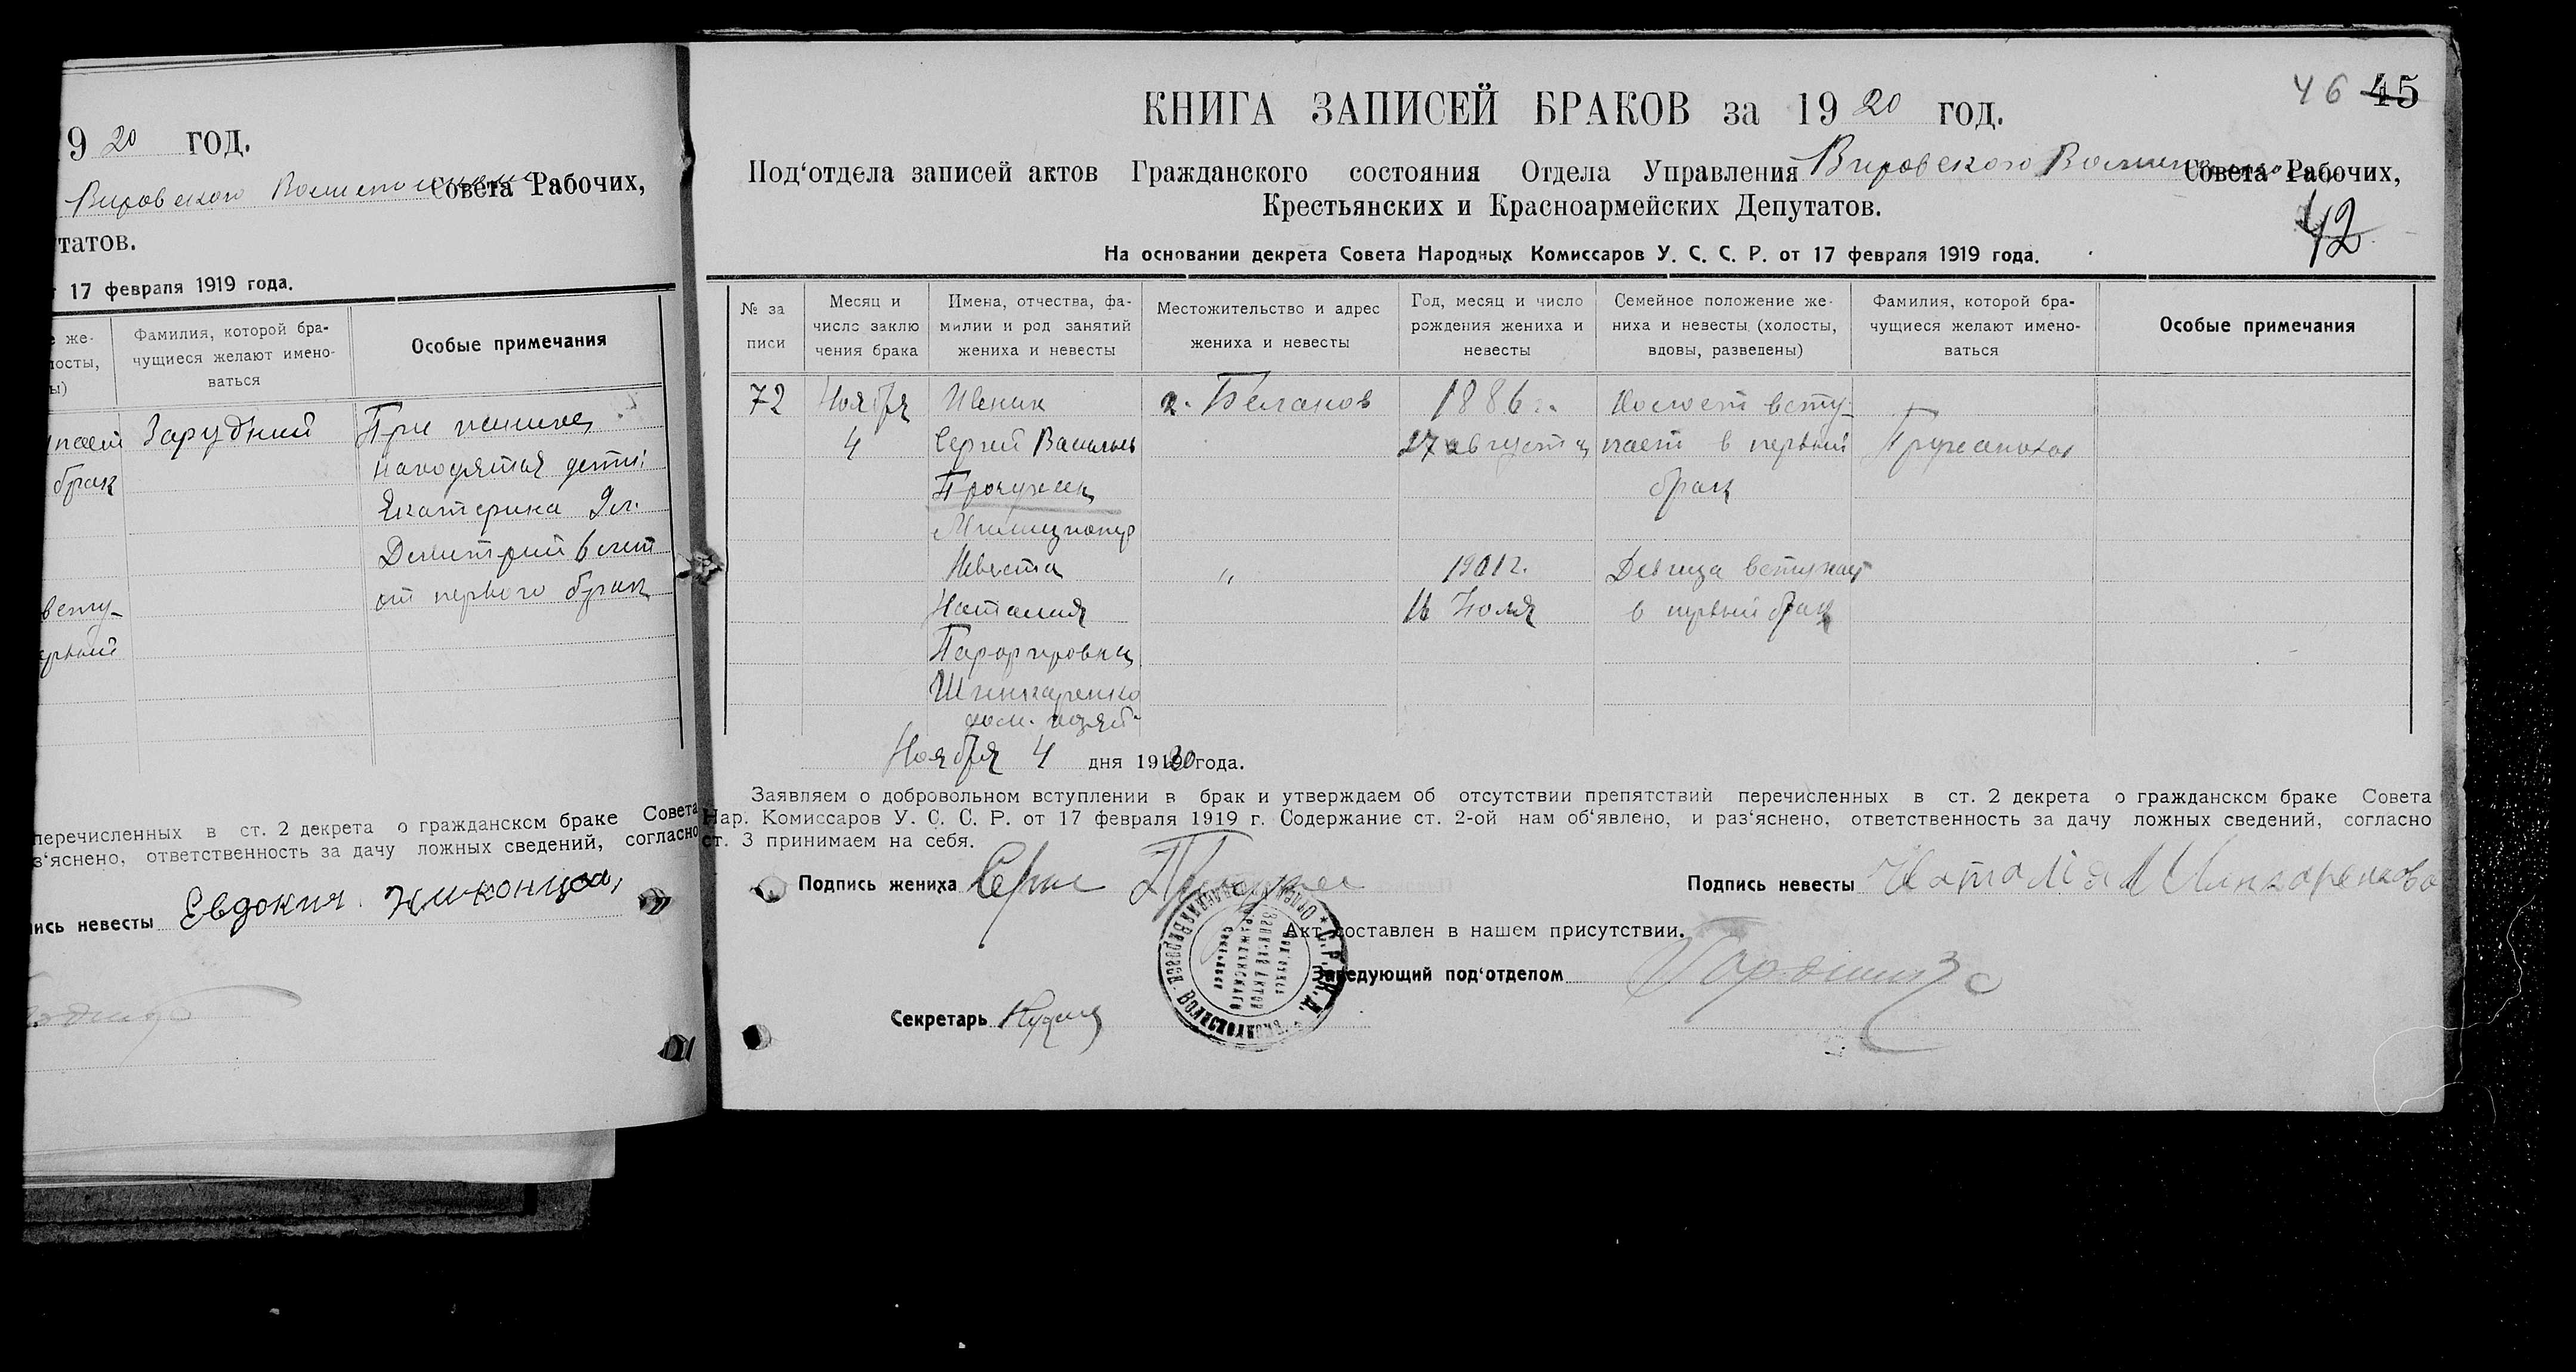 9 20 год.
Вировского Совета Рабочих,
татов.
17 февраля 1919 года.
же-
лосты,
ы)
Фамилия, которой бра-
чущиеся желают имено-
ваться
Особые примечания
пает Зарудний При женихе
брак находятся дети:
Екатерина 9 л.
Дмитрий 6 лет
всту- от первого брака
ервый
перечисленных в ст. 2 декрета о гражданском браке Совета
з'яснено, ответственность за дачу ложных сведений, согласно
ись невесты Евдокия
46 45
КНИГА ЗАПИСЕЙ БРАКОВ за 19 20 год.
Под'отдела записей актов Гражданского состояния Отдела Управления Вировского Совета Рабочих,
Крестьянских и Красноармейских Депутатов.
42
На основании декрета Совета Народных Комиссаров У. С. С. Р. от 17 февраля 1919 года.
№ за
писи
Месяц и
число заклю
чения брака
Имена, отчества, фа-
милии и род занятий
жениха и невесты
Местожительство и адрес
жениха и невесты
Год, месяц и число
рождения жениха и
невесты
Семейное положение же-
ниха и невесты (холосты,
вдовы, разведены)
Фамилия, которой бра-
чущиеся желают имено-
ваться
Особые примечания
72 Ноября Жених 1886 г. Холост всту-
4 Сергей Васильев 27 августа пает в первый
брак
Милиционер
Невеста " 1901 г. Девица вступает
Наталия 16 Июля в первый брак
Шинкаренко
Ноября 4 дня 1920 года.
Заявляем о добровольном вступлении в брак и утверждаем об отсутствии препятствий перечисленных в ст. 2 декрета о гражданском браке Совета
Нар. Комиссаров У. С. С. Р. от 17 февраля 1919 г. Содержание ст. 2-ой нам об'явлено, и раз'яснено, ответственность за дачу ложных сведений, согласно
ст. 3 принимаем на себя.
Подпись жениха Подпись невесты Наталія Шинкаренкова
Акт составлен в нашем присутствии.
Заведующий под'отделом
Секретарь